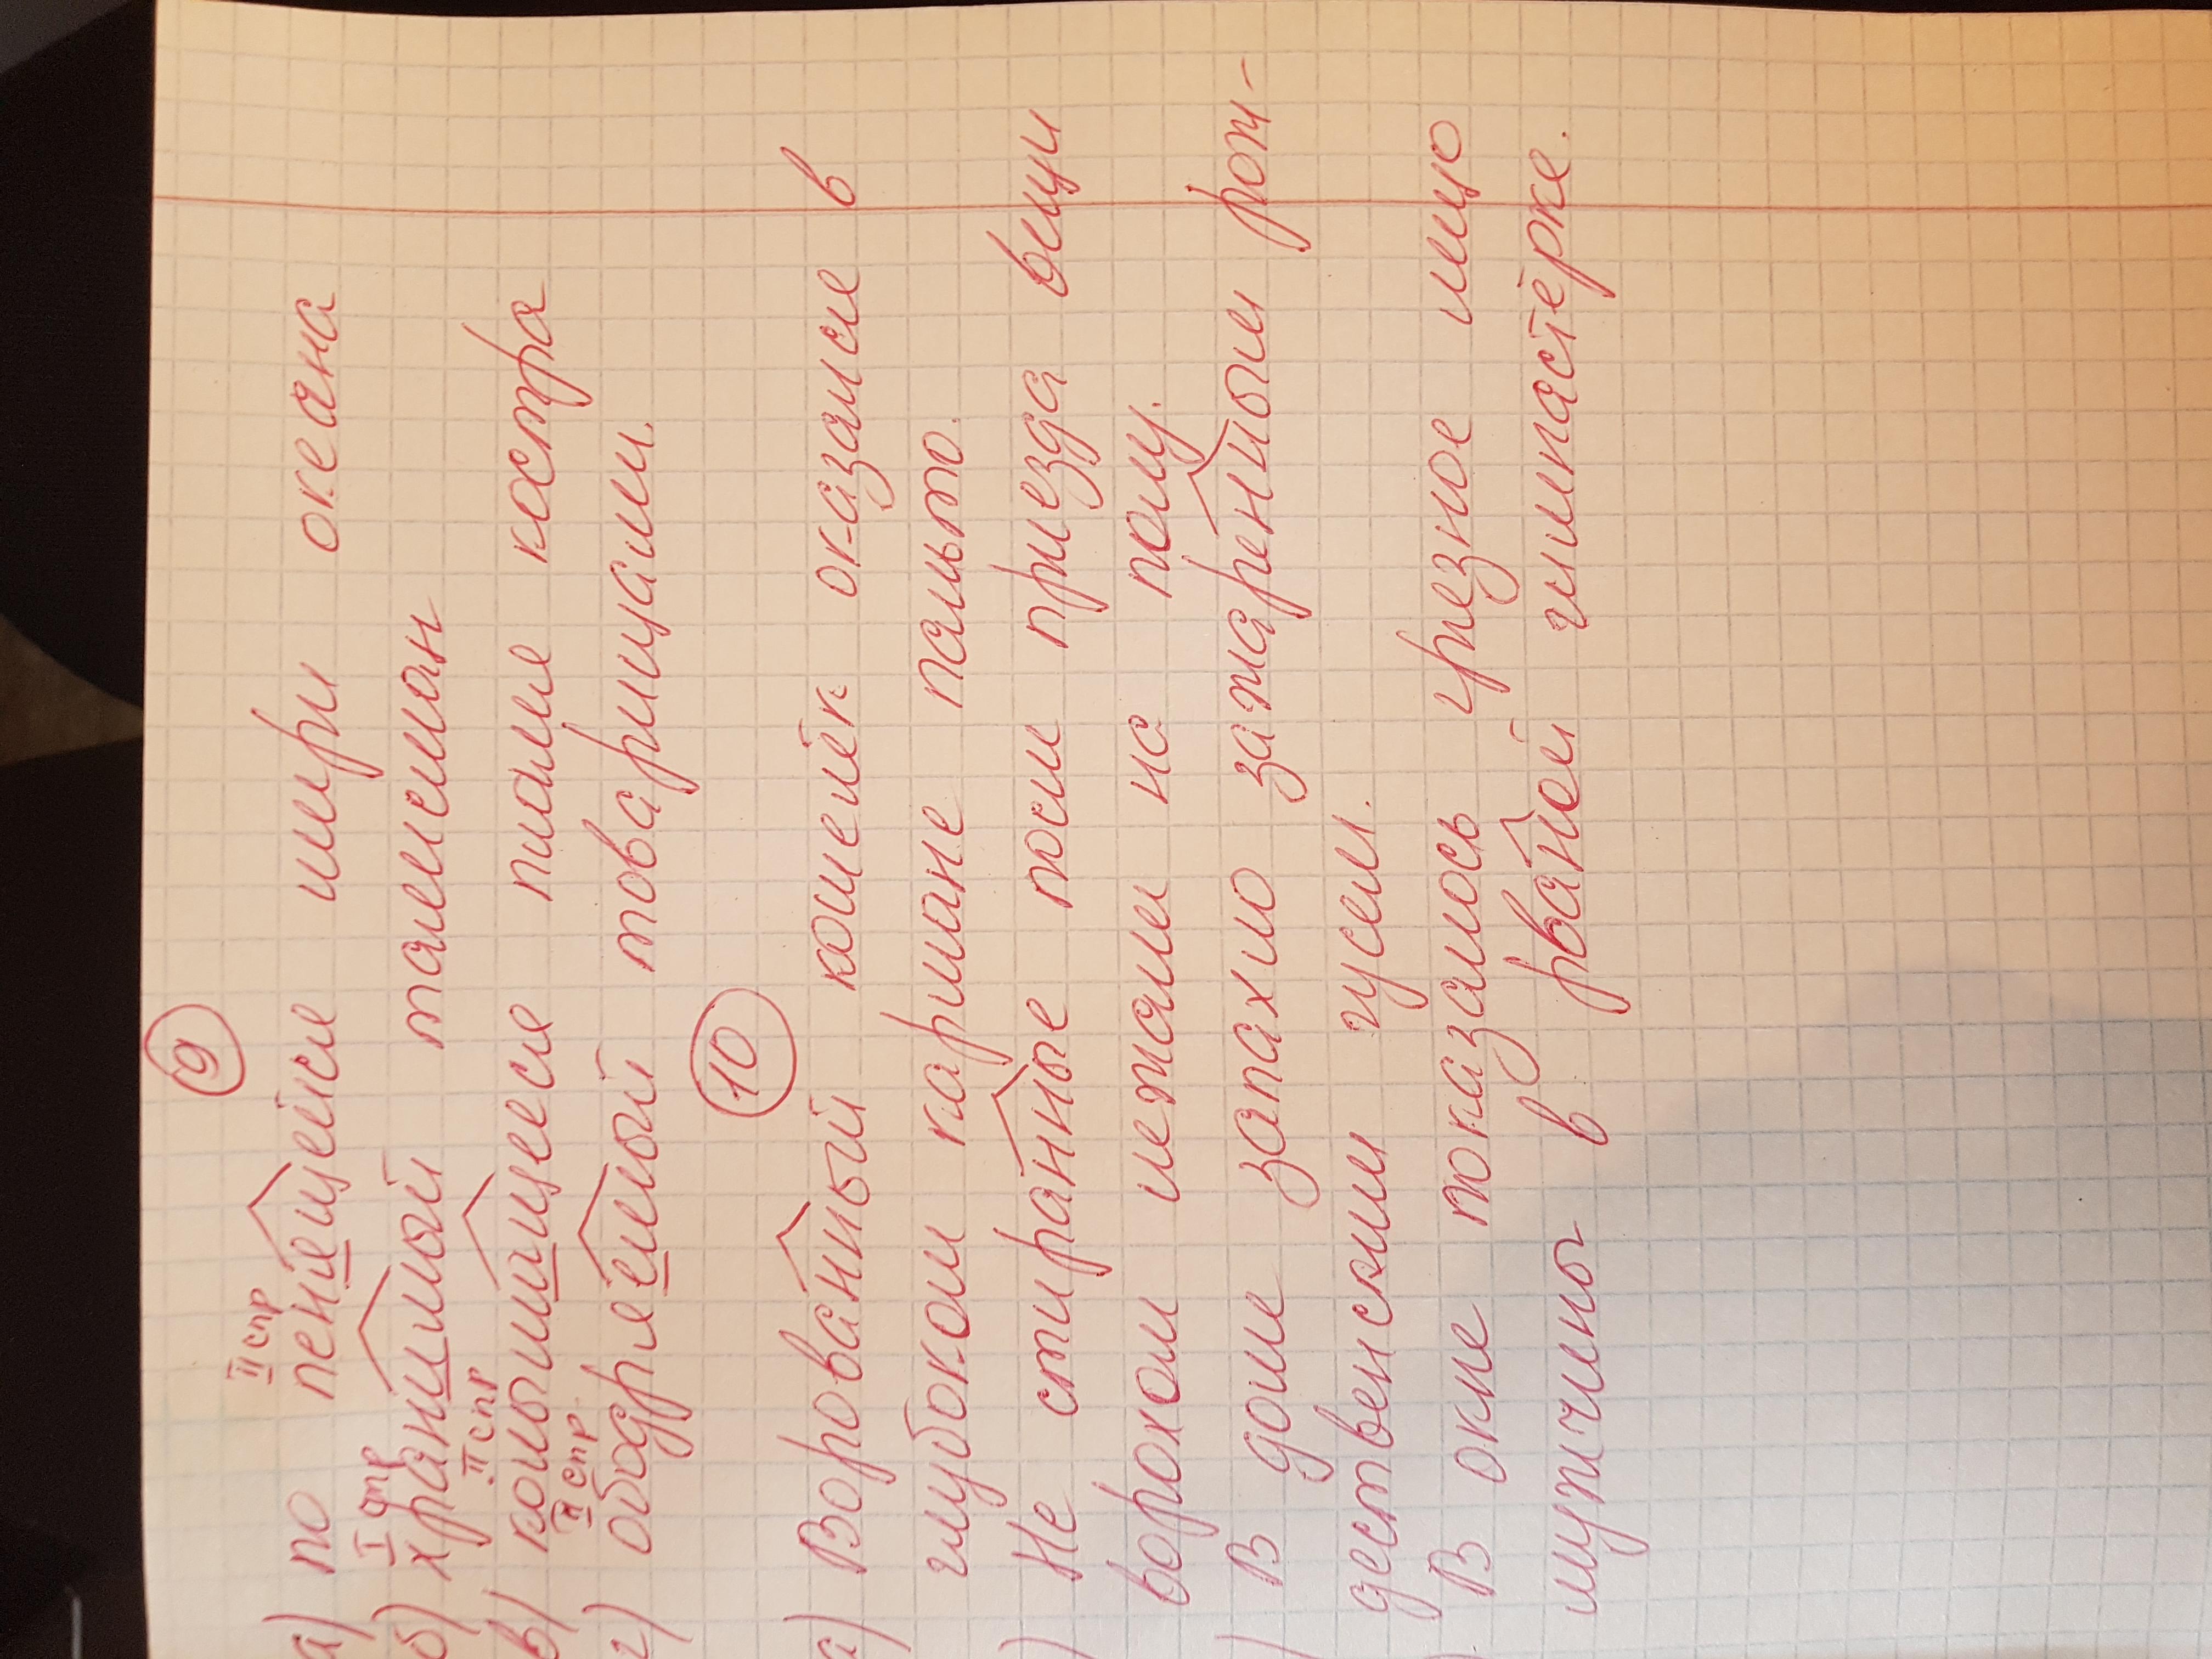 9
II спр
а) по пенищейся шири океана
I спр
б) хранимый талисман
II спр
в) колышищееся пламя костра
II спр
г) ободряемый товарищами.
10
а) Ворованный кошелёк оказался в
глубоком кармане пальто.
) Не стиранные после приезда вещи
ворохом лежали на полу.
) В доме запахло зажаренным рож-
дественским гусем.
) В окне показалось грязное лицо
мужчины в рваной гимнастёрке.